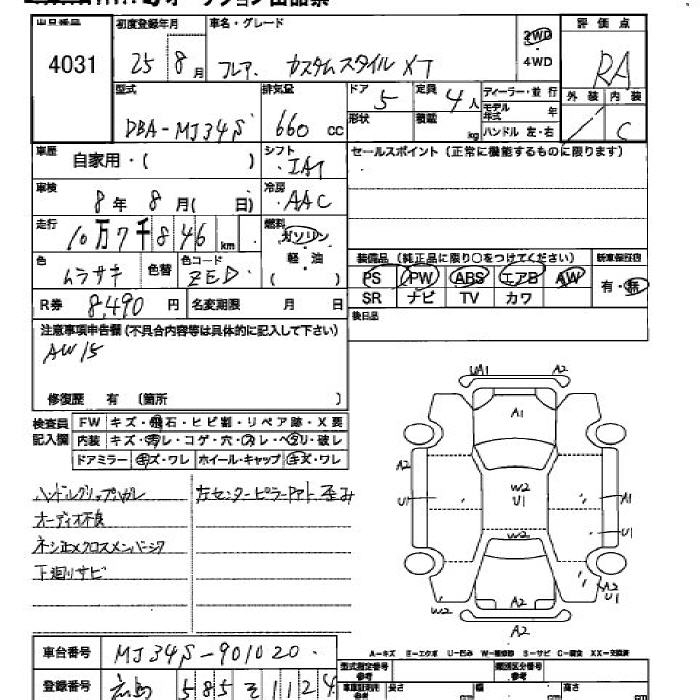 出品番号 初度登録年月 車名・グレード 評価点
4031 25 8月 フレア カスタムスタイル XT 2WD 4WD RA
型式 排気量 ドア 定員 ディーラー・並行 外装 内装
DBA-MJ34S 660 cc 5 4人 モデル年式 年 C
形状 積載 kg ハンドル 左・右
車歴 自家用・( ) シフト ・IAT セールスポイント (正常に機能するものに限ります)
車検 8年 8月( 日) 冷房 ・AAC
走行 10万7千846 km 燃料 ガソリン
軽・油
( )
色 ムラサキ 色替 色コード ZED 装備品 (純正品に限り○をつけてください) 新車保証書
PS PW ABS エアB AW 有・無
SR ナビ TV カワ
R券 8,490円 名変期限 月 日 後日品
注意事項申告欄 (不具合内容等は具体的に記入して下さい)
AW15
修復歴 有 (箇所 )
検査員記入欄 FW キズ・飛石・ヒビ割・リペア跡・X要
内装 キズ・汚レ・コゲ・穴・スレ・ヘタリ・破レ
ドアミラー キズ・ワレ ホイール・キャップ キズ・ワレ
ハンドルグリップハガレ 左センターピラーアウト歪み
オーディオ不良
下廻りサビ
UA1 A2
A1
A2
U1 W2 U1 A1
U1
W2
A2 U1
W2 A2
A2
A-キズ E-エクボ U-凹み W-補修跡 S-サビ C-腐食 XX-交換済
車台番号 MJ34S-901020
型式指定番号 参考 類別区分番号 参考
登録番号 広島 585 そ 1124 長さ 幅 高さ